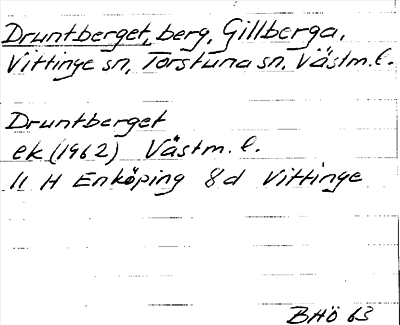 Druntberget, berg, Gillberga,
Vittinge sn, Torstuna sn, Västm. l.
Druntberget
ek (1962) Västm. l.
11 H Enköping 8d Vittinge
BHÖ 63